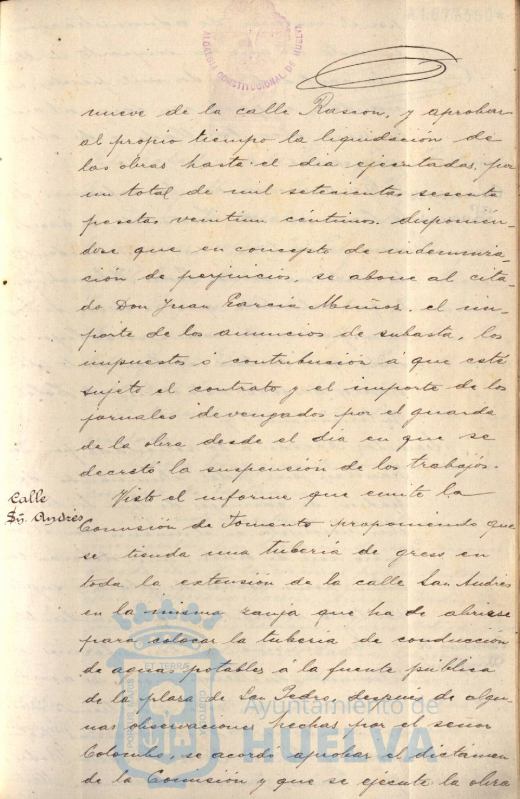 ALCALDIA CONSTITUCIONAL DE HUELVA
nueve de la calle Rascon, y aprobar
al propio tiempo la liquidación de
las obras hasta el dia ejecutadas, por
un total de mil setecientas sesenta
pesetas veintiun céntimos. disponien-
dose que en concepto de indemniza-
ción de perjuicios, se abone al cita-
do Don Juan Garcia Muñoz, el im-
porte de los anuncios de subasta, los
impuestos ó contribución á que esté
sujeto el contrato y el importe de los
jornales devengados por el guarda
de la obra desde el dia en que se
decretó la suspensión de los trabajos.
Calle
Sn. Andrés
Visto el informe que emite la
Comisión de Fomento proponiendo que
se tienda una tubería de gress en
toda la extensión de la calle San Andrés
en la misma zanja que ha de abrirse
para colocar la tubería de conducción
de aguas potables á la fuente pública
de la plaza de San Pedro, después de algu-
nas observaciones hechas por el señor
Colombo, se acordó aprobar el dictámen
de la Comisión y que se ejecute la obra
Ayuntamiento de
HUELVA